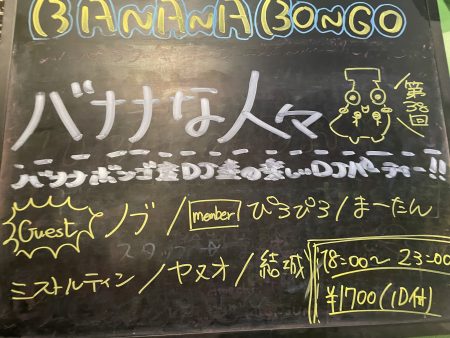 BANANA BONGO
バナナな人々
第38回
バナナボンゴ産DJ達の楽しいDJパーティー!!
Guest ノブ / member ぴろぴろ / まーたん
スタッフ
ミストルティン / ヤヌオ / 結城
18:00~23:00
¥1700(1D付)